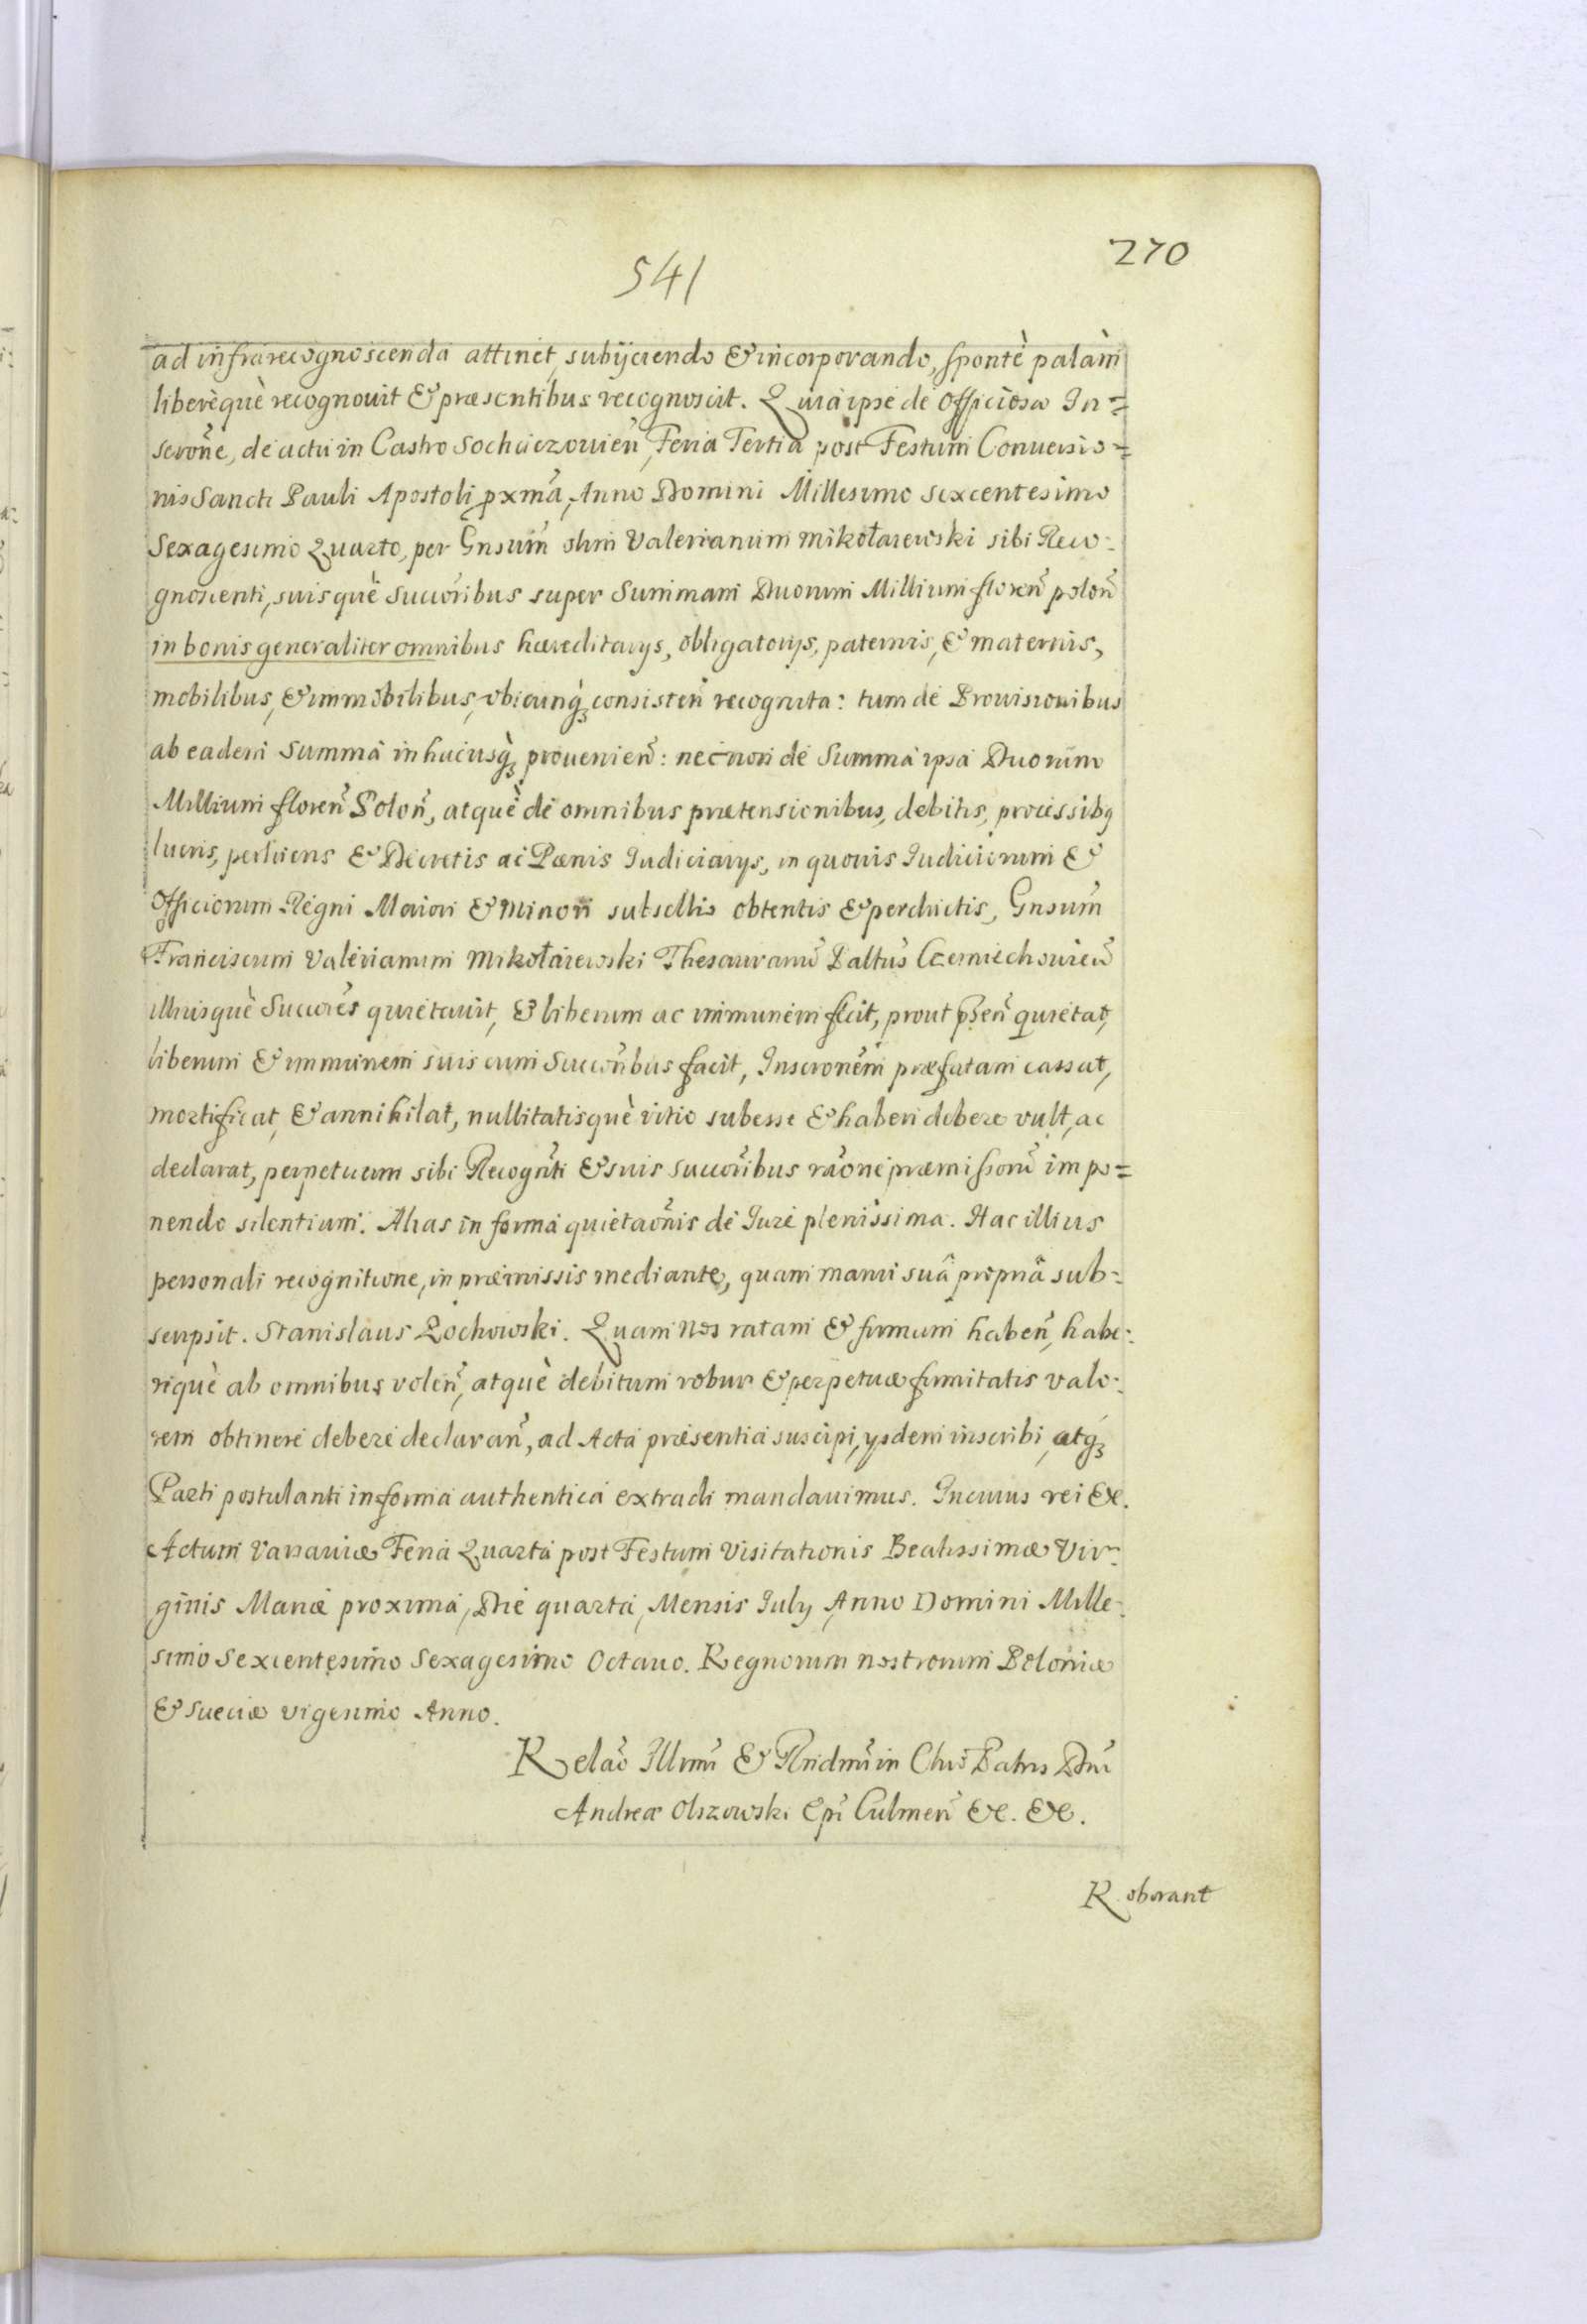 270
541
ad infrarecognoscenda attinet, subijciendo & incorporando, sponte palàm
liberèquè recognouit & præsentibus recognoscit. Quia ipse de Officiosa In=
scrone, de actu in Castro Sochaczouien, Feria Tertia post Festum Conuersio=
nis Sancti Pauli Apostoli pxma, Anno Domini Millesimo sexcentesimo
Sexagesimo Quarto, per Gnsum olim Valerianum Mikołaiewski sibi Reco:
gnoscenti, suisquè succoribus super Summam Duorum Millium floren polon
in bonis generaliter omnibus hæreditarys, obligatorys, paternis, & maternis,
mobilibus, & immobilibus, vbicunq consisten recognita: tum de Prouisionibus
ab eadem Summa in hucusq prouenien: nec non de Summa ipsa Duorum
Millium floren Polon, atquè de omnibus prætensionibus, debitis, processibq
lucris, perlucris & Decretis ac Pænis Iudiciarys, in quouis Iudiciorum &
Officiorum Regni Maiori & Minori subsellio obtentis & perductis, Gnsum
Franciscum Valerianum Mikołaiewski Thesaurarium Paltus Czerniechouien
illiusquè Succores quietauit, & liberum ac immunem fecit, prout psen quietat,
liberum & immunem suis cum Succoribus facit, Inscronem præfatam cassat,
mortificat, & annihilat, nullitatisquè vitio subesse & haberi debere vult, ac
declarat, perpetuum sibi Recognti & suis succoribus raone præmissoru impo=
nendo silentium. Alias in forma quietaonis de Iure plenissima. Hac illius
personali recognitione, in præmissis mediante, quam manu suâ propriâ sub:
scripsit. Stanislaus Lochowski. Quam nos ratam & firmam haben, habe:
riquè ab omnibus volen, atquè debitum robur & perpetuæ firmitatis valo:
rem obtinere debere declaran, ad Acta præsentia suscipi, ysdem inscribi, atq
Parti postulanti in forma authentica extradi mandauimus. In cuius rei &c.
Actum Varsauiæ Feria Quarta post Festum Visitationis Beatissimæ Vir
ginis Mariæ proxima, Die quarta, Mensis July Anno Domini Mille:
simo Sexcentesimo Sexagesimo Octauo. Regnorum nostrorum Poloniæ
& Sueciæ vigesimo Anno.
Relao Illmi & Rndmi in Chro Patris Dni
Andreæ Olszowski Epi Culmen &c. &c.
Roborant